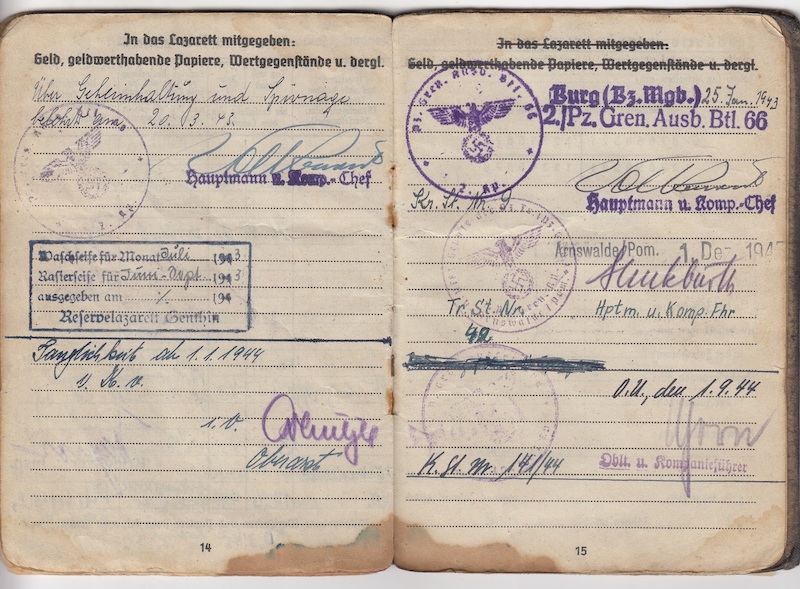 In das Lazarett mitgegeben:
Geld, geldwerthabende Papiere, Wertgegenstände u. dergl.
Über Geheimhaltung und Spionage
belehrt am 20.3.43.
Hauptmann u. Komp.-Chef
Waschseife für Monat Juli 1943
Rasierseife für Juni-Sept 1943
ausgegeben am 194
Reservelazarett Genthin
Tauglichkeit ab 1.1.1944
Oberarzt
14
In das Lazarett mitgegeben:
Geld, geldwerthabende Papiere, Wertgegenstände u. dergl.
Pz. Gren. Ausb. Btl. 66
2. Kp.
Burg (Bz. Mgb.) 25. Jan. 1943
2./Pz. Gren. Ausb. Btl. 66
Hauptmann u. Komp.-Chef
Kr. St. Nr. 9
Arnswalde/Pom. 1. Dez. 194
Tr. St. Nr. Hptm. u. Komp. Fhr
42
O.U., den 1.9.44
Oblt. u. Kompanieführer
K. St. N. 141/44
15